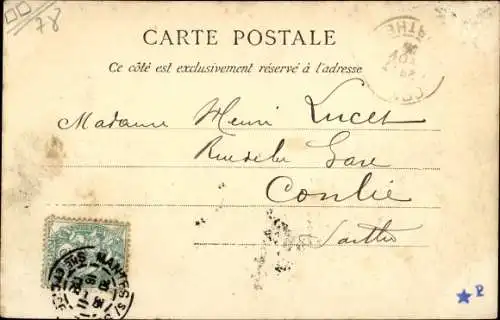 78
CARTE POSTALE
Ce côté est exclusivement réservé à l'adresse
Madame Henri Lucet
Rue de la Gare
Conlie
Sarthe